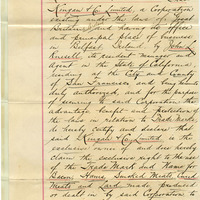 Kingan & Co. Limited, a Corporation
existing under the laws of Great
Britain, and having its office
and principal place of business
in Belfast Ireland, by John
Russell, its resident manager and
Agent in the State of California
residing at the City and County
of San Francisco and thereunto
duly authorized, and for the purpose
of securing to said Corporation the
advantage, benefit and protection of
the laws in relation to Trade Marks
do hereby certify and declare that
said Kingan & Co. Limited, is the
exclusive owner of and does hereby
claim the exclusive right to the use
of the Trade Mark and Name for
Bacon, Hams, Smoked Meats, Cured
Meats and Lard made, produced
or dealt in by said Corporation, to